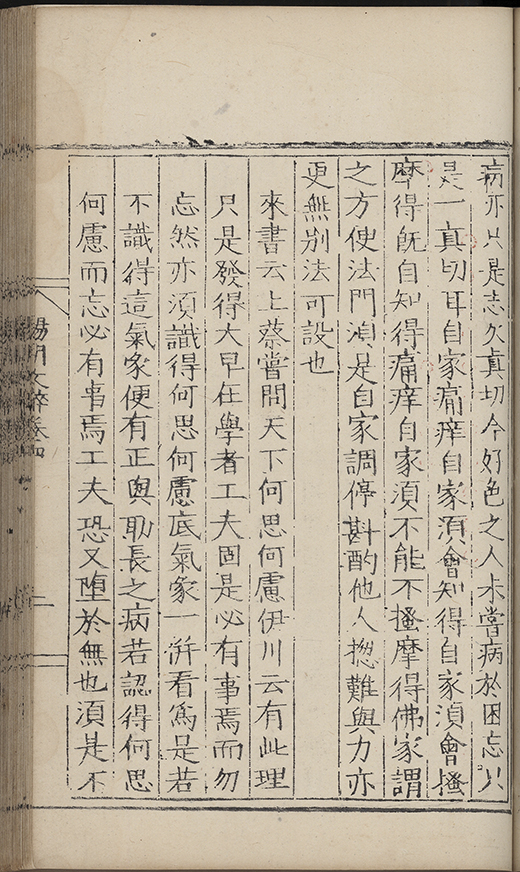 病亦只是志欠真切今好色之人未嘗病於困忘只
是一真切耳自家痛痒自家湏會知得自家湏會搔
摩得既自知得痛痒自家湏不能不搔摩得佛家謂
之方便法門湏是自家調停斟酌他人揔難與力亦
更無别法可設也
來書云上蔡嘗問天下何思何慮伊川云有此理
只是發得太早在學者工夫固是必有事焉而勿
忘然亦須識得何思何慮底氣象一併看爲是若
不識得這氣象便有正與助長之病若認得何思
何慮而忘必有事焉工夫恐又墮於無也湏是不
陽明文粹卷四